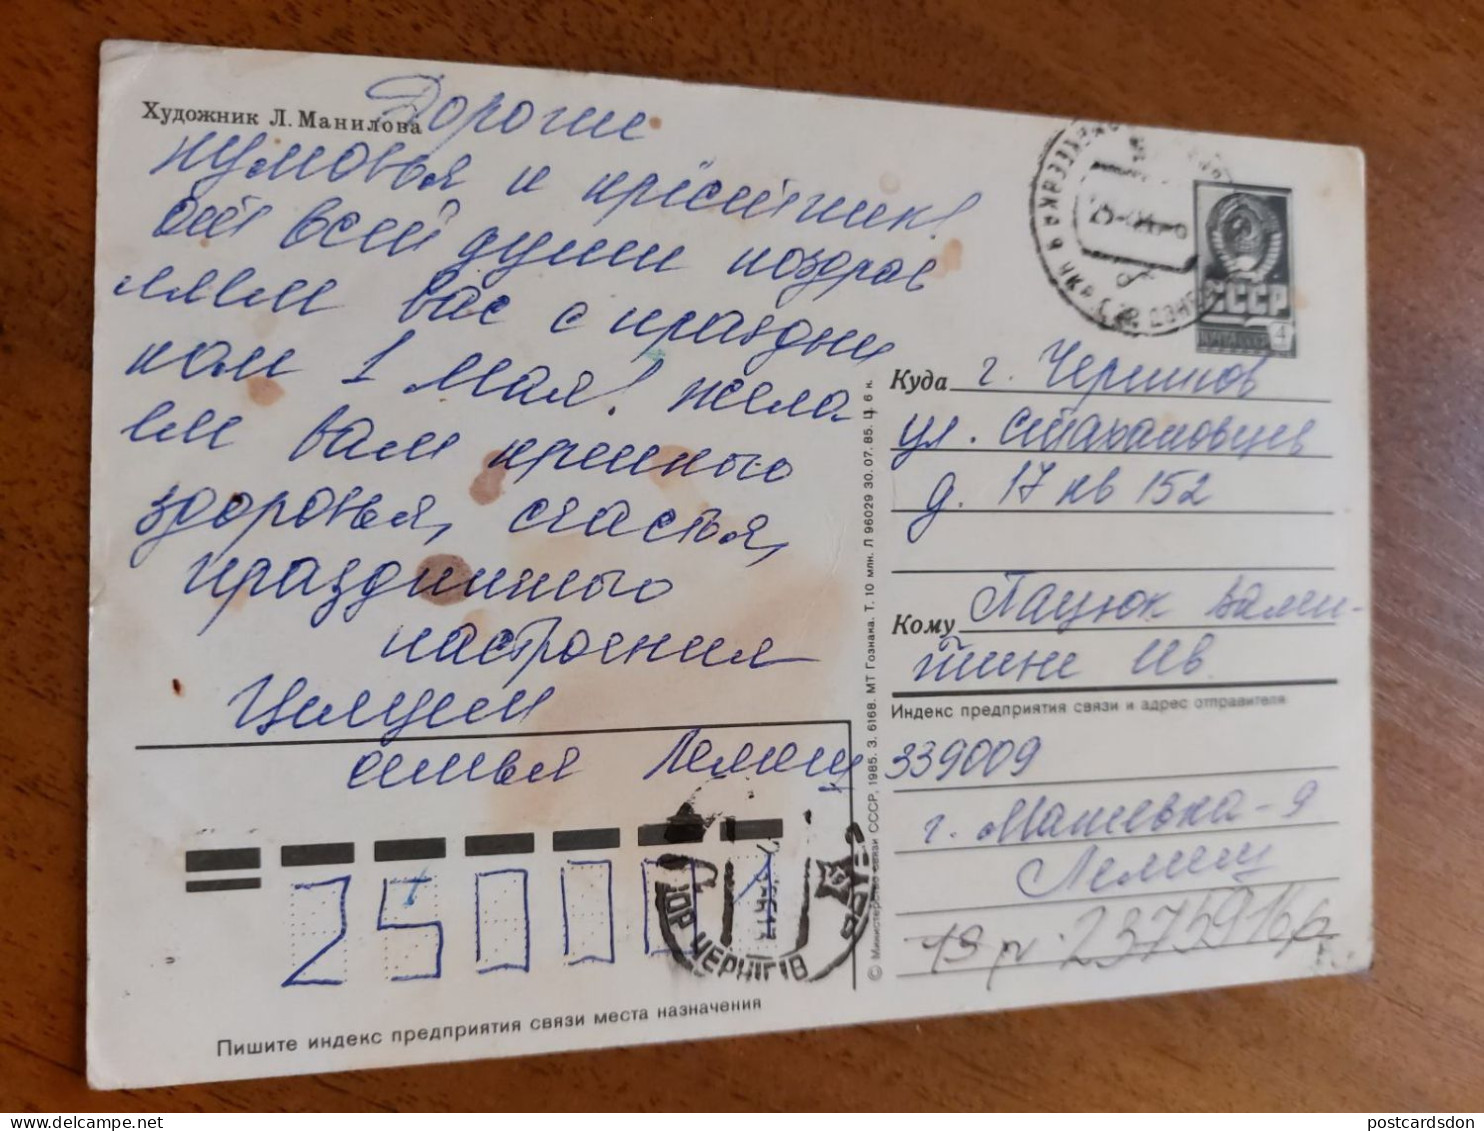 Художник Л. Манилова
Дорогие
кумовья и крёстник!
от всей души поздрав
ляем вас с праздни
ком 1 мая! жела
ем вам крепкого
здоровья, счастья,
праздничного
настроения
Целуем
семья Лемещ
25000
Пишите индекс предприятия связи места назначения
© Министерство связи СССР, 1985. З. 6168. МТ Гознака. Т. 10 млн. Л 96029 30.07.85. Ц. 6 к.
СССР
4
Куда г. Чернигов
ул. Стахановцев
д. 17 кв 152
Кому Пацюк Вален-
тине Ив.
Индекс предприятия связи и адрес отправителя
339009
г. Макеевка-9
Лемещ
ЧЕРНІГІВ
postcardsdon